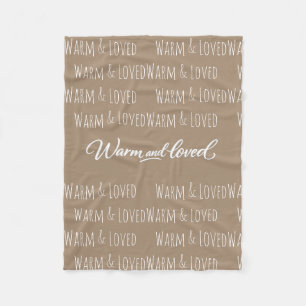 Warm & Loved Warm & LovedWarm
Warm & LovedWarm & Loved
Warm & Loved Warm & Loved
Warm & LovedWarm & Loved
Warm and loved
Warm & Loved Warm & LovedWarm
Warm & LovedWarm & Loved
Warm & Loved Warm & Loved
Warm & LovedWarm & Loved